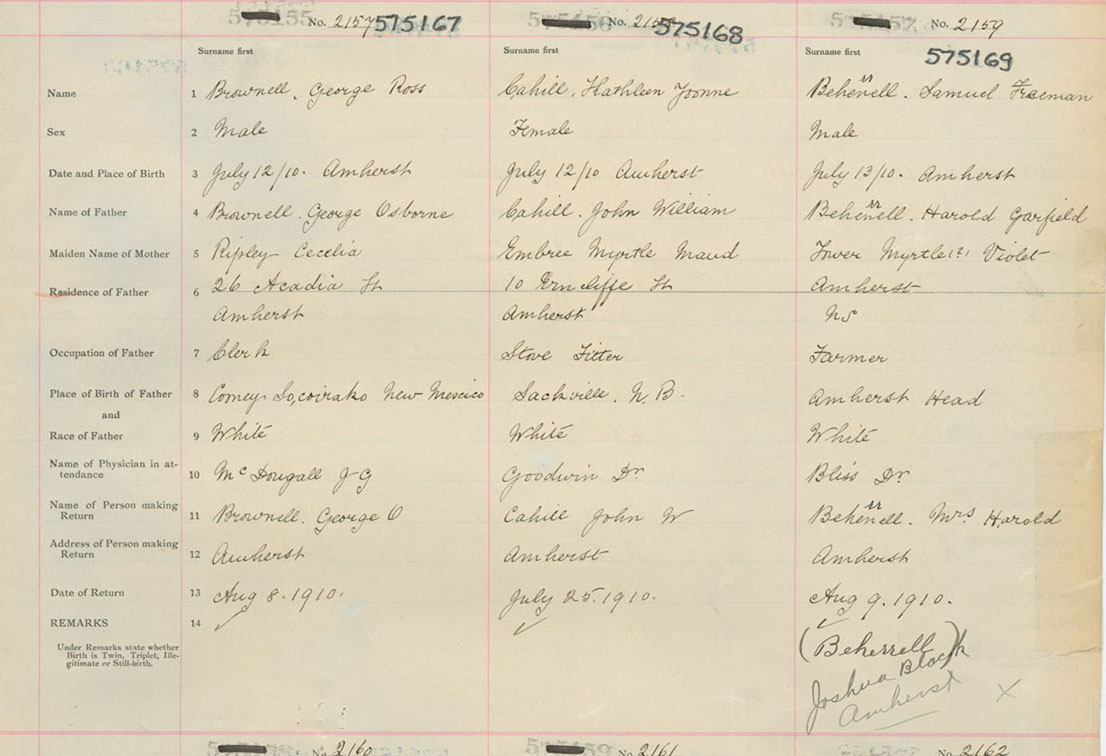 No. 2157 575167
No. 575168
No. 2159
575169
Surname first Surname first Surname first
Name 1 Brownell. George Ross Cahill. Kathleen Yvonne Behennell. Samuel Freeman
rr
Sex 2 Male Female Male
Date and Place of Birth 3 July 12/10. Amherst July 12/10 Amherst July 13/10. Amherst
Name of Father 4 Brownell. George Osborne Cahill. John William Behennell. Harold Garfield
rr
Maiden Name of Mother 5 Ripley Cecelia Embree Myrtle Maud Myrtle Violet
Residence of Father 6 26 Acadia St 10 St Amherst
Amherst Amherst NS
Occupation of Father 7 Clerk Stove Fitter Farmer
Place of Birth of Father 8 New Mexico Sackville. N.B. Amherst Head
and
Race of Father 9 White White White
Name of Physician in at-
tendance 10 McDougall J G Goodwin Dr Bliss Dr
Name of Person making
Return 11 Brownell. George O Cahill John W Behennell. Mrs Harold
rr
Address of Person making
Return 12 Amherst Amherst Amherst
Date of Return 13 Aug 8. 1910. July 25. 1910. Aug 9. 1910.
REMARKS 14
Under Remarks state whether
Birth is Twin, Triplet, Ille-
gitimate or Still-birth.
(Beherrell)
Joshua Black
Amherst X
No. 2160 No. 2161 No. 2162